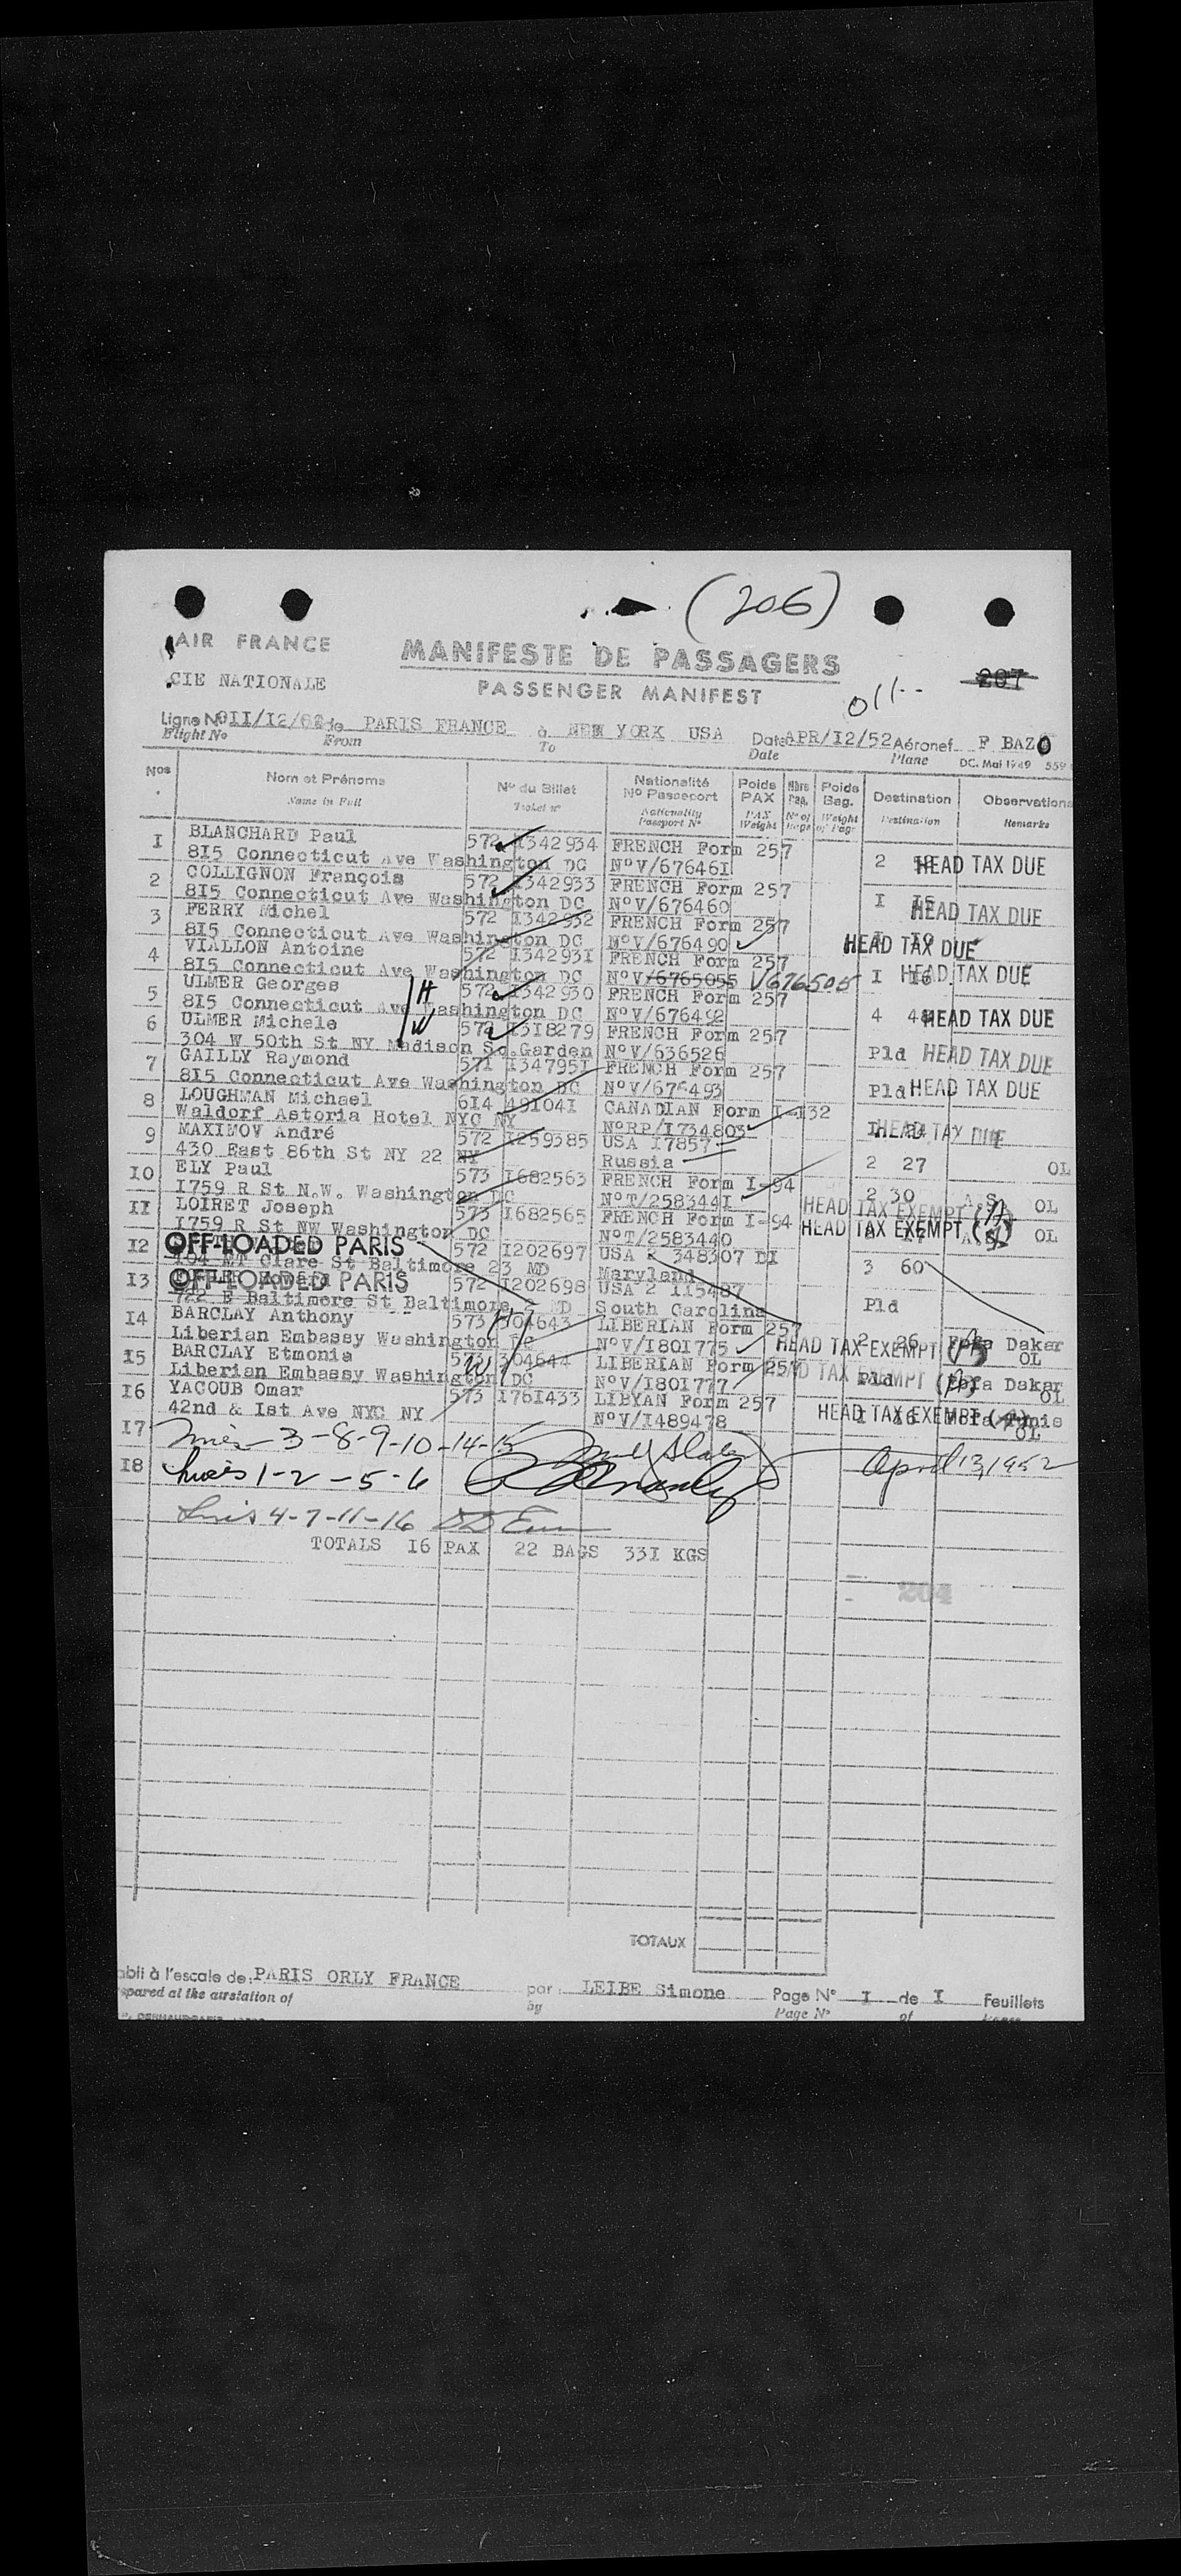 (206)
AIR FRANCE
MANIFESTE DE PASSAGERS
CIE NATIONALE
PASSENGER MANIFEST
207
011--
Ligne No 0II/I2/ de PARIS FRANCE à NEW YORK USA Date APR/I2/52 Aéronef F BAZO
Flight No From To Date Plane DC. Mai 1949
Nos Nom et Prénoms No du Billet Nationalité No Passeport Poids PAX Nbre Poids Bag. Destination Observations
Name in Full Ticket no Nationality Passport No PAX Weight No of Weight of Bags Destination Remarks
I BLANCHARD Paul 572 I342934 FRENCH Form 257
8I5 Connecticut Ave Washington DC NoV/67646I 2 HEAD TAX DUE
2 COLLIGNON François 572 I342933 FRENCH Form 257
8I5 Connecticut Ave Washington DC NoV/676460 I I5 HEAD TAX DUE
3 FERRY Michel 572 I342932 FRENCH Form 257
8I5 Connecticut Ave Washington DC NoV/676490 HEAD TAX DUE
4 VIALLON Antoine 572 I34293I FRENCH Form 257
8I5 Connecticut Ave Washington DC NoV/6765055 V676505 I HEAD TAX DUE
5 ULMER Georges H 572 I342930 FRENCH Form 257
8I5 Connecticut Ave Washington DC NoV/676492 4 HEAD TAX DUE
6 ULMER Michele W 572 I3I8279 FRENCH Form 257
304 W 50th St NY Madison Sq.Garden NoV/636526 Pld HEAD TAX DUE
7 GAILLY Raymond 57I I34795I FRENCH Form 257
8I5 Connecticut Ave Washington DC NoV/676493 Pld HEAD TAX DUE
8 LOUGHMAN Michael 6I4 49I04I CANADIAN Form I-I32
Waldorf Astoria Hotel NYC NY NoRP/I734803 HEAD TAX DUE
9 MAXIMOV André 572 I259385 USA I7857
430 East 86th St NY 22 NY Russia 2 27 OL
I0 ELY Paul 573 I682563 FRENCH Form I-94
I759 R St N.W. Washington DC NoT/258344I 2 30 HEAD TAX EXEMPT A.S. OL
II LOIRET Joseph 573 I682565 FRENCH Form I-94
I759 R St NW Washington DC NoT/2583440 HEAD TAX EXEMPT A.S. OL
I2 OFF-LOADED PARIS 572 I202697 USA 348307 DI
MT Clare St Baltimore 23 MD Maryland 3 60
I3 OFF-LOADED PARIS 572 I202698 USA 2 II5487
722 E Baltimore St Baltimore 2 MD South Carolina Pld
I4 BARCLAY Anthony H 573 304643 LIBERIAN Form 257
Liberian Embassy Washington DC NoV/I80I775 HEAD TAX EXEMPT 2 26 Dakar OL
I5 BARCLAY Etmonia W 573 304644 LIBERIAN Form 257
Liberian Embassy Washington DC NoV/I80I777 HEAD TAX EXEMPT Pld Dakar OL
I6 YACOUB Omar 573 I76I433 LIBYAN Form 257
42nd & Ist Ave NYC NY NoV/I489478 HEAD TAX EXEMPT Tunis OL
I7 3-8-9-10-14-15
I8 1-2-5-6 April 13, 1952
4-7-11-16
TOTALS I6 PAX 22 BAGS 33I KGS
204
TOTAUX
abli à l'escale de: PARIS ORLY FRANCE par: LEIBE Simone Page No I de I Feuillets
epared at the airstation of by Page No of